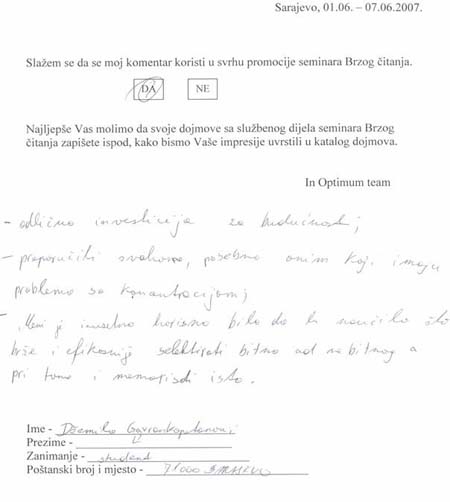 Sarajevo, 01.06. – 07.06.2007.
Slažem se da se moj komentar koristi u svrhu promocije seminara Brzog čitanja.
DA NE
Najljepše Vas molimo da svoje dojmove sa službenog dijela seminara Brzog
čitanja zapišete ispod, kako bismo Vaše impresije uvrstili u katalog dojmova.
In Optimum team
– odlična investicija za budućnost;
– preporučiti svakome, posebno onim koji imaju
probleme sa koncentracijom;
– Meni je izuzetno korisno bilo da naučila što
brže i efikasnije selektirati bitno od nebitnog a
pri tome i memorisati isto.
Ime - Dzemila
Prezime -
Zanimanje - student
Poštanski broj i mjesto - 71000 SARAJEVO